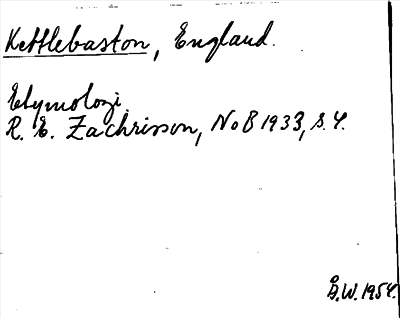 Kettlebaston, England.
Etymologi.
R. E. Zachrisson, NoB 1933, s. 4.
Å.W. 1954.